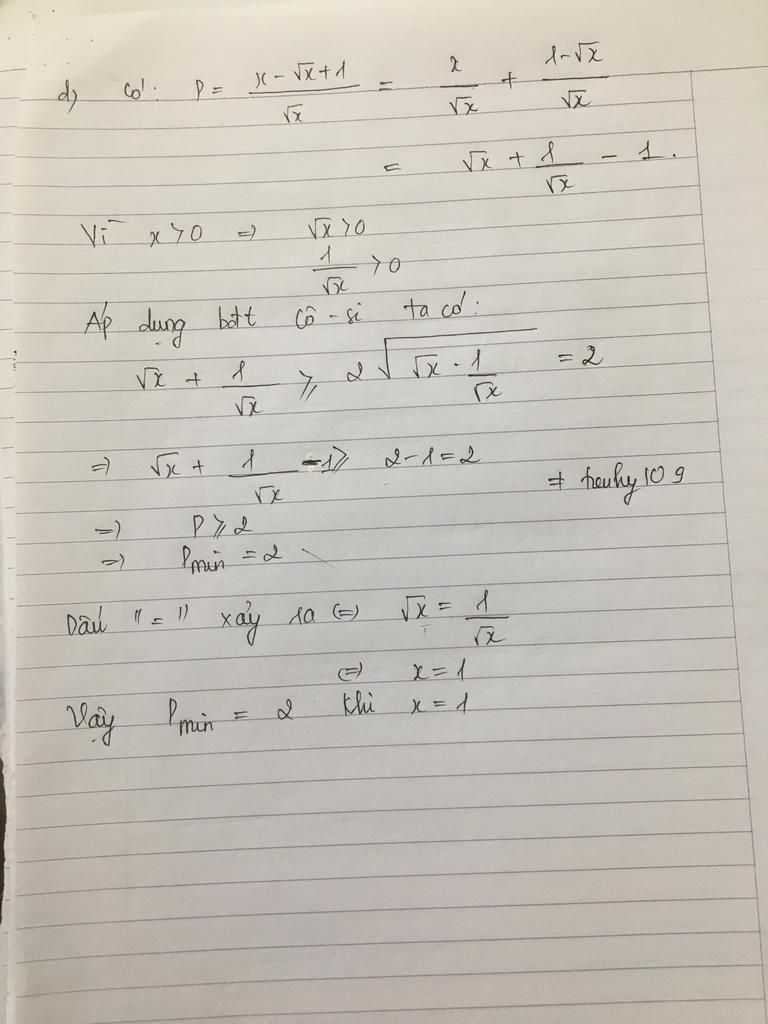 d) Có: P = (x - √x + 1)/√x = x/√x + (1 - √x)/√x
= √x + 1/√x - 1.
Vì x > 0 => √x > 0
1/√x > 0
Áp dụng bđt Cô-si ta có:
√x + 1/√x ≥ 2√(√x . 1/√x) = 2
=> √x + 1/√x - 1 ≥ 2 - 1 = 2
=> P ≥ 2
=> Pmin = 2
Dấu "=" xảy ra <=> √x = 1/√x
<=> x = 1
Vậy Pmin = 2 khi x = 1